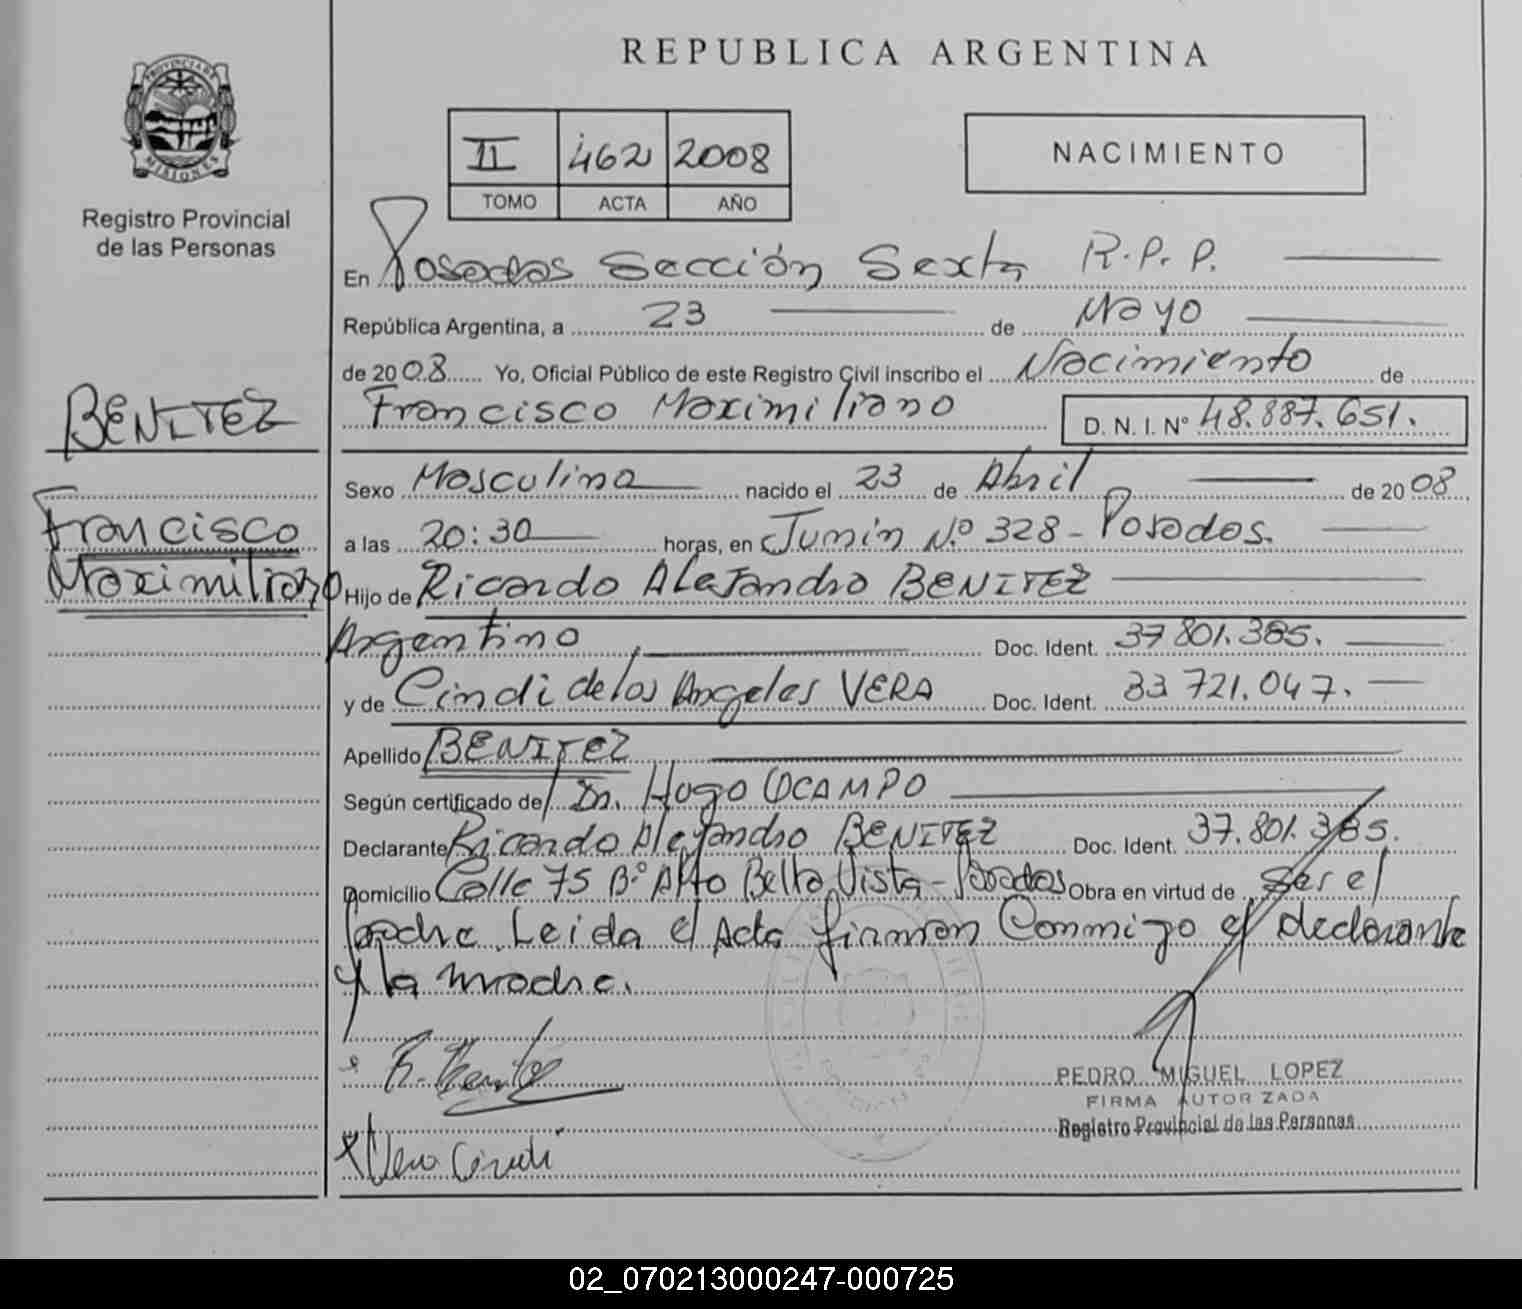 PROVINCIA DE
MISIONES
Registro Provincial
de las Personas
BENITEZ
Francisco
Maximiliano
REPUBLICA ARGENTINA
II 462 2008
TOMO ACTA AÑO
NACIMIENTO
En Posadas Sección Sexta R.P.P.
República Argentina, a 23 de Mayo
de 2008 Yo, Oficial Público de este Registro Civil inscribo el Nacimiento de
Francisco Maximiliano D. N. I. N° 48.887.651.
Sexo Masculino nacido el 23 de Abril de 2008
a las 20:30 horas, en Junín N.º 328 - Posadas.
Hijo de Ricardo Alejandro BENITEZ
Argentino Doc. Ident. 37 801.385.
y de Cindi de los Angeles VERA Doc. Ident. 33 721.047.
Apellido BENITEZ
Según certificado de Dr. Hugo OCAMPO
Declarante Ricardo Alejandro BENITEZ Doc. Ident. 37.801.385.
Domicilio Calle 75 B.º Alto Bella Vista - Posadas Obra en virtud de Ser el
padre. Leida el Acta firman Conmigo el declarante
y la madre.
R. Benitez
PEDRO MIGUEL LOPEZ
FIRMA AUTORIZADA
Registro Provincial de las Personas
x Vera Cindi
02_070213000247-000725